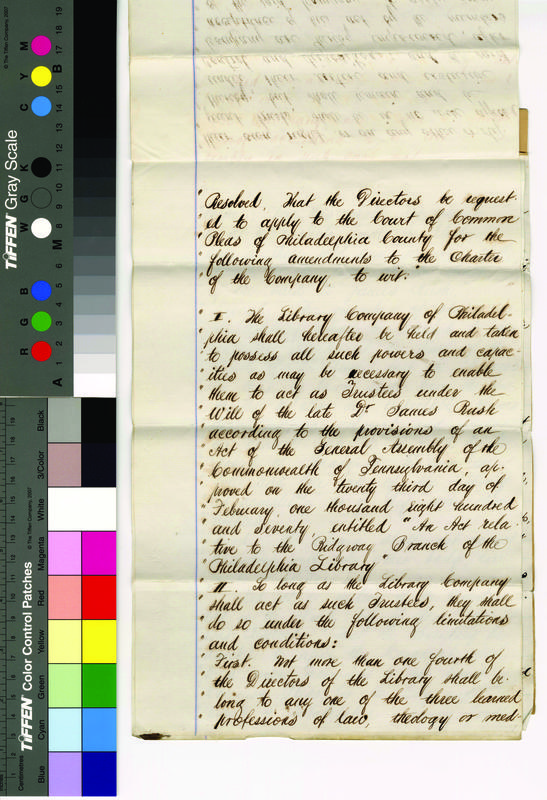 " Resolved, That the Directors be request-
" ed to apply to the Court of Common
" Pleas of Philadelphia County for the
" following amendments to the Charter
" of the Company, to wit:"
" I. The Library Company of Philadel-
" phia shall hereafter be held and taken
" to possess all such powers and capac-
" ities as may be necessary to enable
" them to act as Trustees under the
" Will of the late Dr James Rush
" according to the provisions of an
" Act of the General Assembly of the
" Commonwealth of Pennsylvania, ap-
" proved on the twenty third day of
" February, one thousand eight hundred
" and seventy, entitled "An Act rela-
" tive to the Ridgway Branch of the
" Philadelphia Library
" II. So long as the Library Company
" shall act as such Trustees, they shall
" do so under the following limitations
" and conditions:
" First. Not more than one fourth of
" the Directors of the Library shall be-
" long to any one of the three learned
" professions of law, theology or med-
TIFFEN Gray Scale
© The Tiffen Company, 2007
R G B W G K C Y M
A 1 2 3 4 5 6 M 8 9 10 11 12 13 14 15 B 17 18 19
TIFFEN Color Control Patches
© The Tiffen Company, 2007
Centimetres
Blue Cyan Green Yellow Red Magenta White 3/Color Black